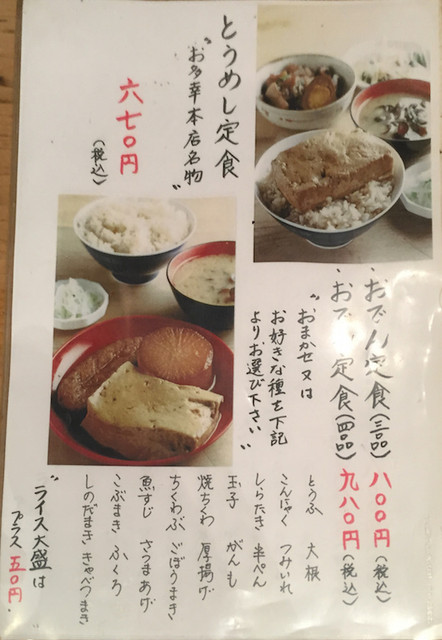 とうめし定食
"お多幸本店名物"
六七〇円
(税込)
・おでん定食(三品) 八〇〇円(税込)
・おでん定食(四品) 九八〇円(税込)
"おまかせ又は
お好きな種を下記
よりお選び下さい"
とうふ 大根
こんにゃく つみいれ
しらたき 半ぺん
玉子 がんも
焼ちくわ 厚揚げ
ちくわぶ ごぼうまき
魚すじ さつまあげ
こぶまき ふくろ
しのだまき きゃべつまき
"ライス大盛は
プラス 五〇円"